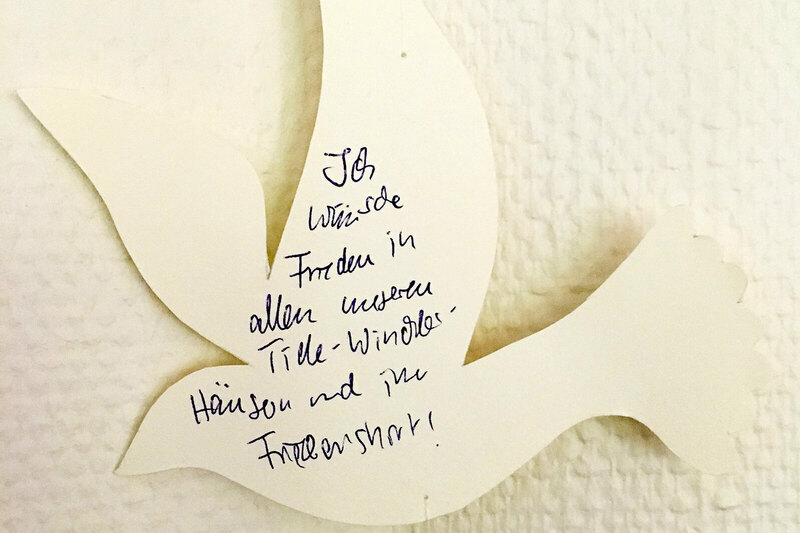 Ich
wünsche
Frieden in
allen unseren
Tiele-Winckler-
Häusern und im
Friedenshort!